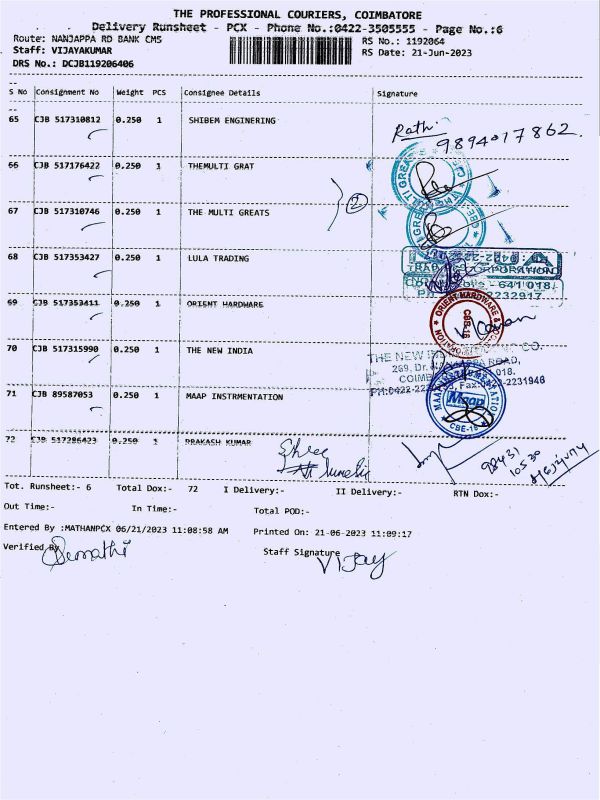 THE PROFESSIONAL COURIERS, COIMBATORE
Delivery Runsheet - PCX - Phone No.:0422-3505555 - Page No.:6
Route: NANJAPPA RD BANK CMS RS No.: 1192064
Staff: VIJAYAKUMAR RS Date: 21-Jun-2023
DRS No.: DCJB119206406
S No Consignment No Weight PCS Consignee Details Signature
65 CJB 517310812 0.250 1 SHIBEM ENGINERING
Rath. 9894017862.
66 CJB 517176422 0.250 1 THEMULTI GRAT
2
67 CJB 517310746 0.250 1 THE MULTI GREATS
68 CJB 517353427 0.250 1 LULA TRADING
TRADING CORPORATION
- 641 018.
2232917
69 CJB 517353411 0.250 1 ORIENT HARDWARE
ORIENT HARDWARE &
CBE-18
70 CJB 517315990 0.250 1 THE NEW INDIA
THE NEW INDIA CO.
269, Dr. NANJAPPA ROAD,
018.
PH:0422-2231946
71 CJB 89587053 0.250 1 MAAP INSTRMENTATION
MAAP INSTRUMENTATION
Maap
CBE-18
72 CJB 517286423 0.250 1 PRAKASH KUMAR
Shree
98431
10530
Tot. Runsheet:- 6 Total Dox:- 72 I Delivery:- II Delivery:- RTN Dox:-
Out Time:- In Time:- Total POD:-
Entered By :MATHANPCX 06/21/2023 11:08:58 AM Printed On: 21-06-2023 11:09:17
Verified By Staff Signature
Sumathi VIJay